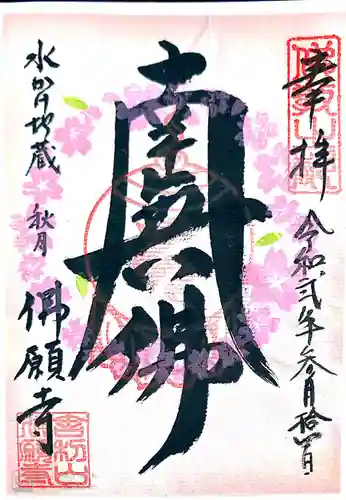 奉拝
令和弐年参月拾四日
南無佛
水かけ地蔵
秋月
佛願寺